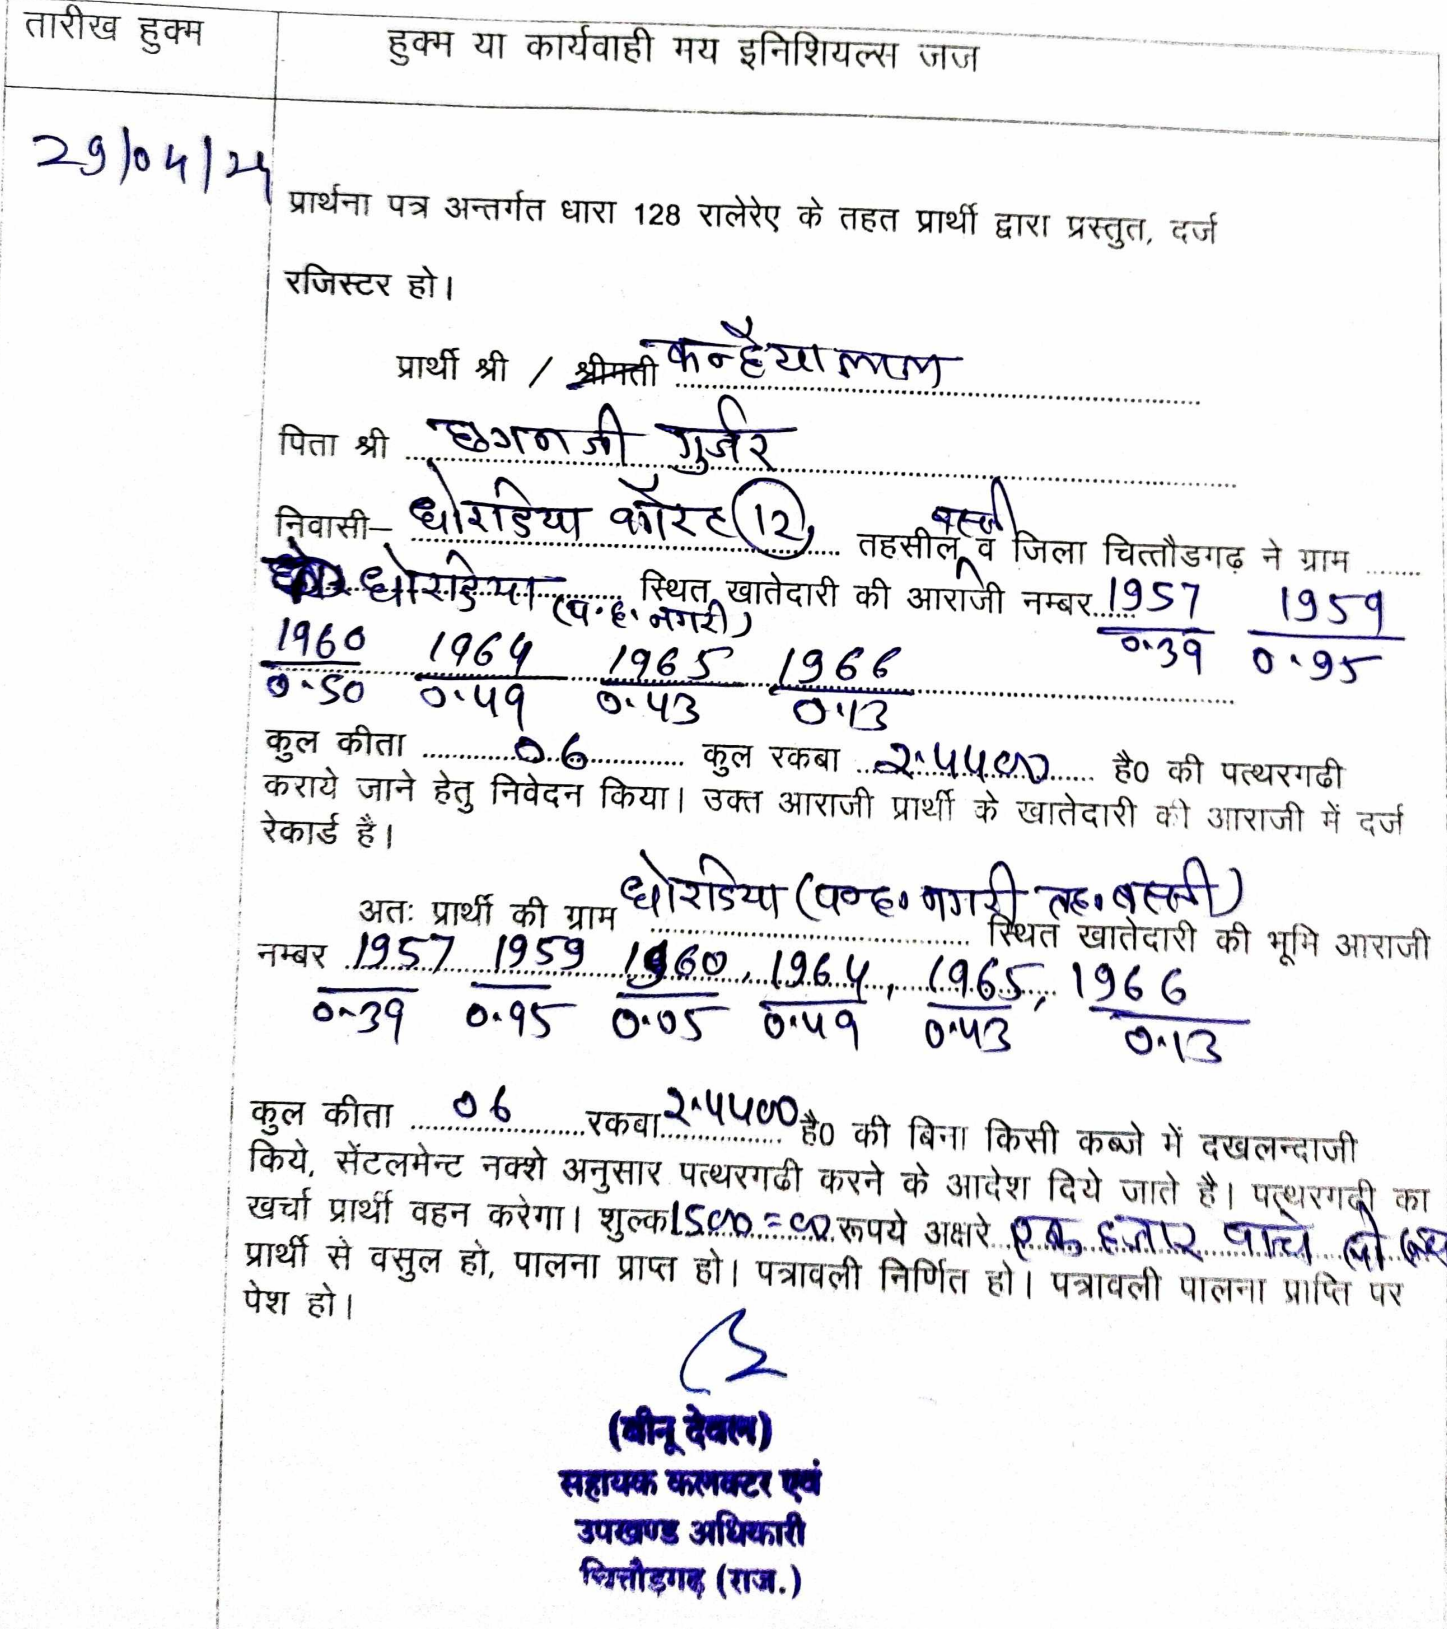 तारीख हुक्म
हुक्म या कार्यवाही मय इनिशियल्स जज
29/04/24
प्रार्थना पत्र अन्तर्गत धारा 128 रालेरेए के तहत प्रार्थी द्वारा प्रस्तुत, दर्ज
रजिस्टर हो।
प्रार्थी श्री / श्रीमती कन्हैयालाल
पिता श्री छगनजी गुर्जर
निवासी– धोरडिया 12, तहसील बस्सी व जिला चित्तौडगढ़ ने ग्राम ........
धोरडिया (प.ह. नगरी) स्थित खातेदारी की आराजी नम्बर 1957 1959
0.39 0.95
1960 1964 1965 1966
0.50 0.49 0.43 0.13
कुल कीता 06 कुल रकबा 2.4400 है0 की पत्थरगढी
कराये जाने हेतु निवेदन किया। उक्त आराजी प्रार्थी के खातेदारी की आराजी में दर्ज
रेकार्ड है।
अतः प्रार्थी की ग्राम धोरडिया (प०ह० नगरी तह. बस्सी) स्थित खातेदारी की भूमि आराजी
नम्बर 1957 1959 1960, 1964, 1965, 1966
0.39 0.95 0.05 0.49 0.43 0.13
कुल कीता 06 रकबा 2.4400 है0 की बिना किसी कब्जे में दखलन्दाजी
किये, सेंटलमेन्ट नक्शे अनुसार पत्थरगढी करने के आदेश दिये जाते है। पत्थरगढी का
खर्चा प्रार्थी वहन करेगा। शुल्क 1500=00 रूपये अक्षरे एक हजार पांच सौ
प्रार्थी से वसुल हो, पालना प्राप्त हो। पत्रावली निर्णित हो। पत्रावली पालना प्राप्ति पर
पेश हो।
(बीनू देवल)
सहायक कलक्टर एवं
उपखण्ड अधिकारी
चित्तौड़गढ़ (राज.)